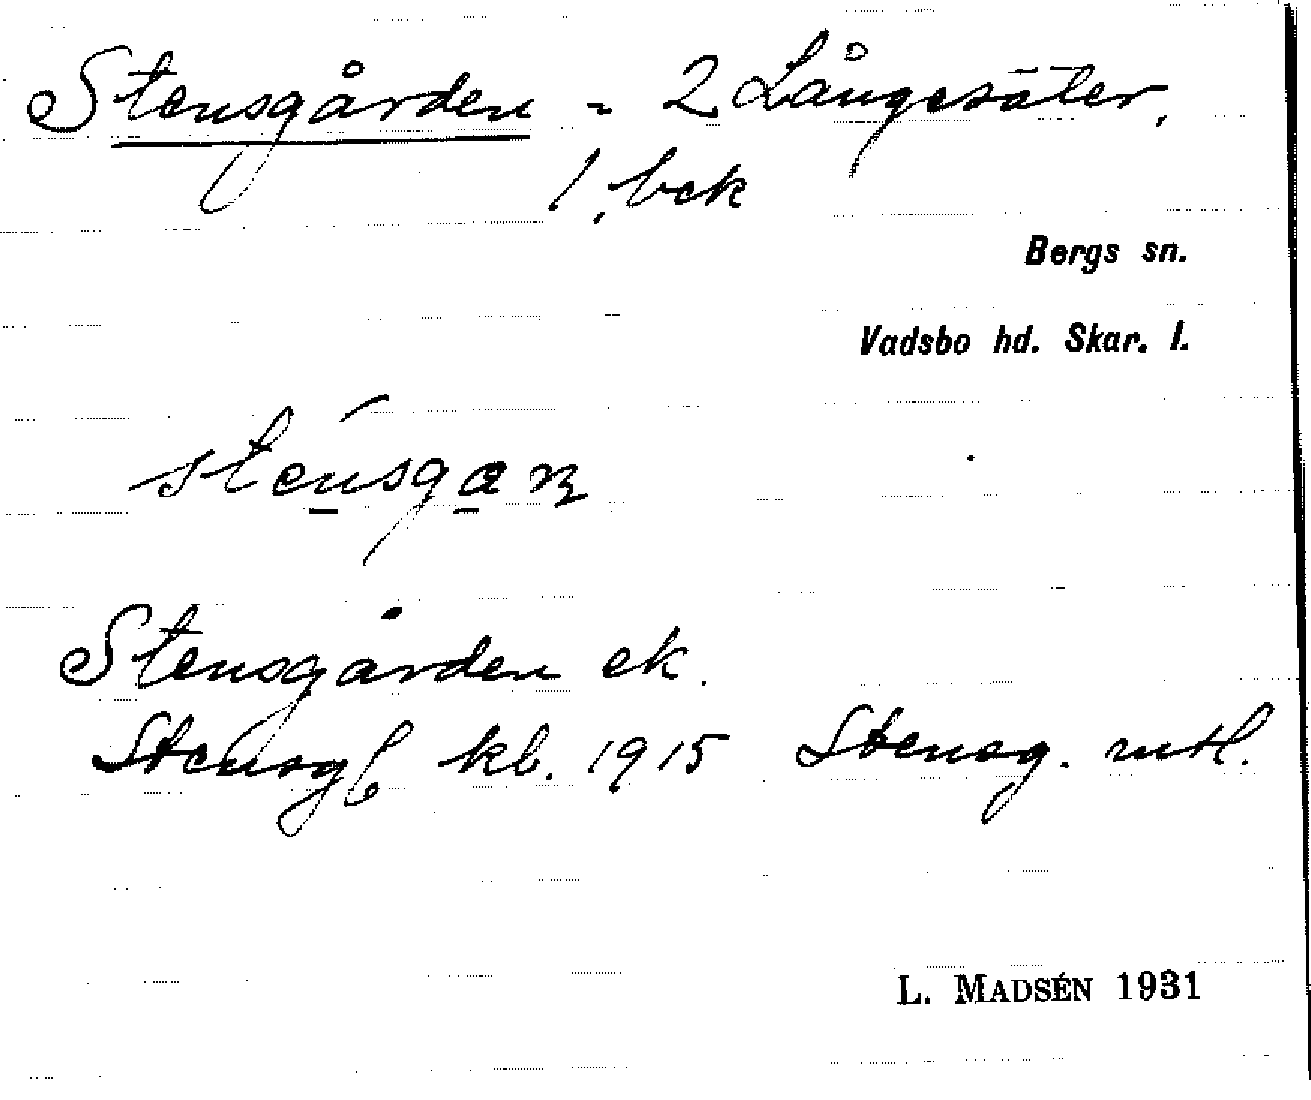 Stensgården = 2 Långesäter,
1, bek
Bergs sn.
Vadsbo hd. Skar. l.
Stensgården ek.
Stensg kb. 1915 Stensg. mtl.
L. MADSÉN 1931